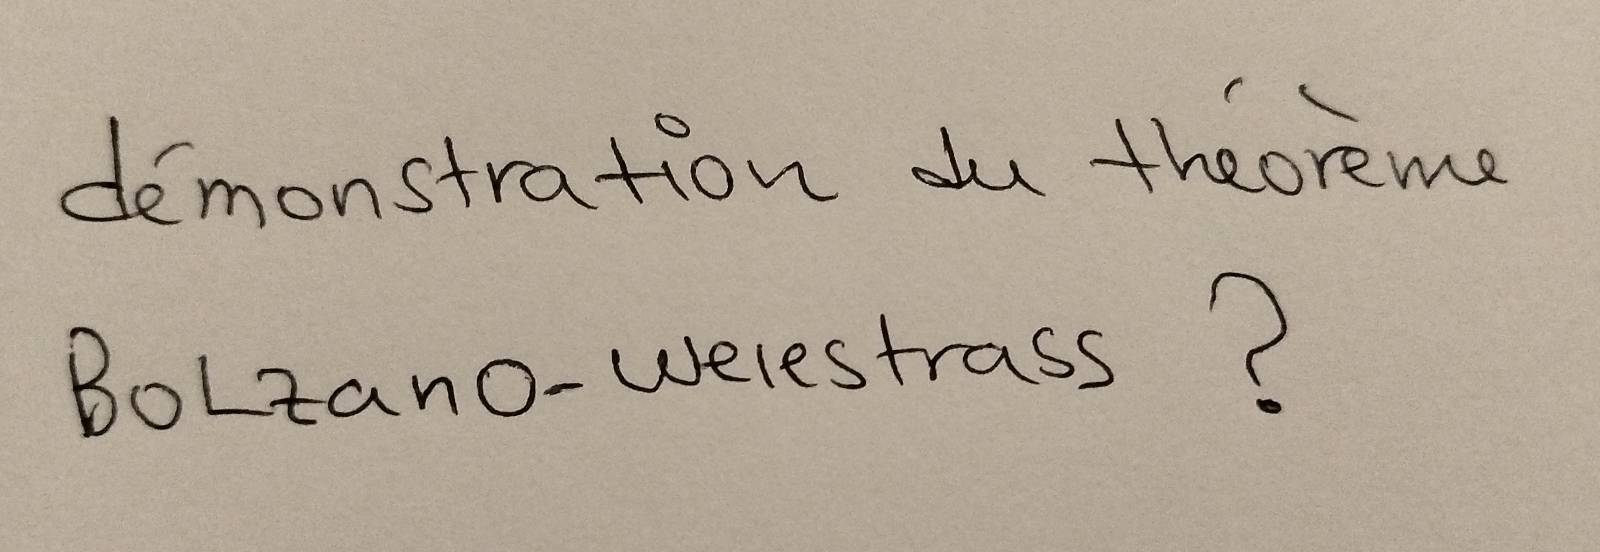 démonstration du théorème
BoLzano-weiestrass ?